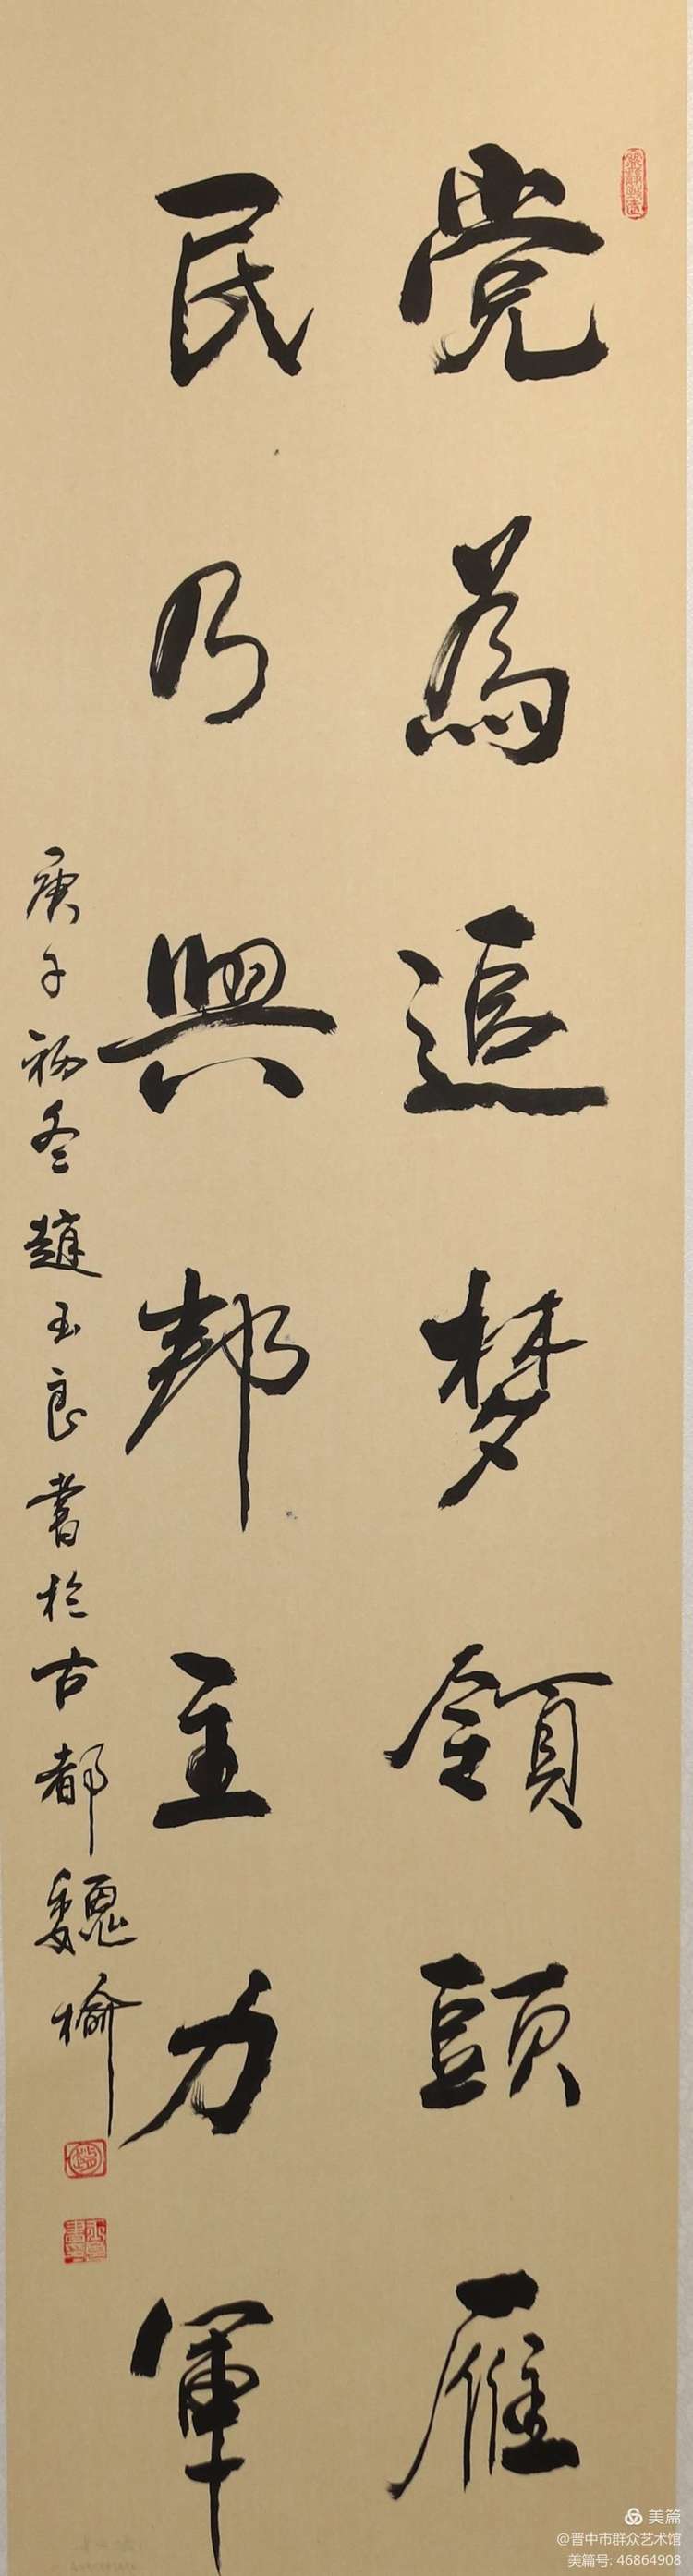 党為追梦領頭雁
民乃興邦主力軍
庚子初冬趙玉良書於古都魏榆
美篇
@晋中市群众艺术馆
美篇号: 46864908